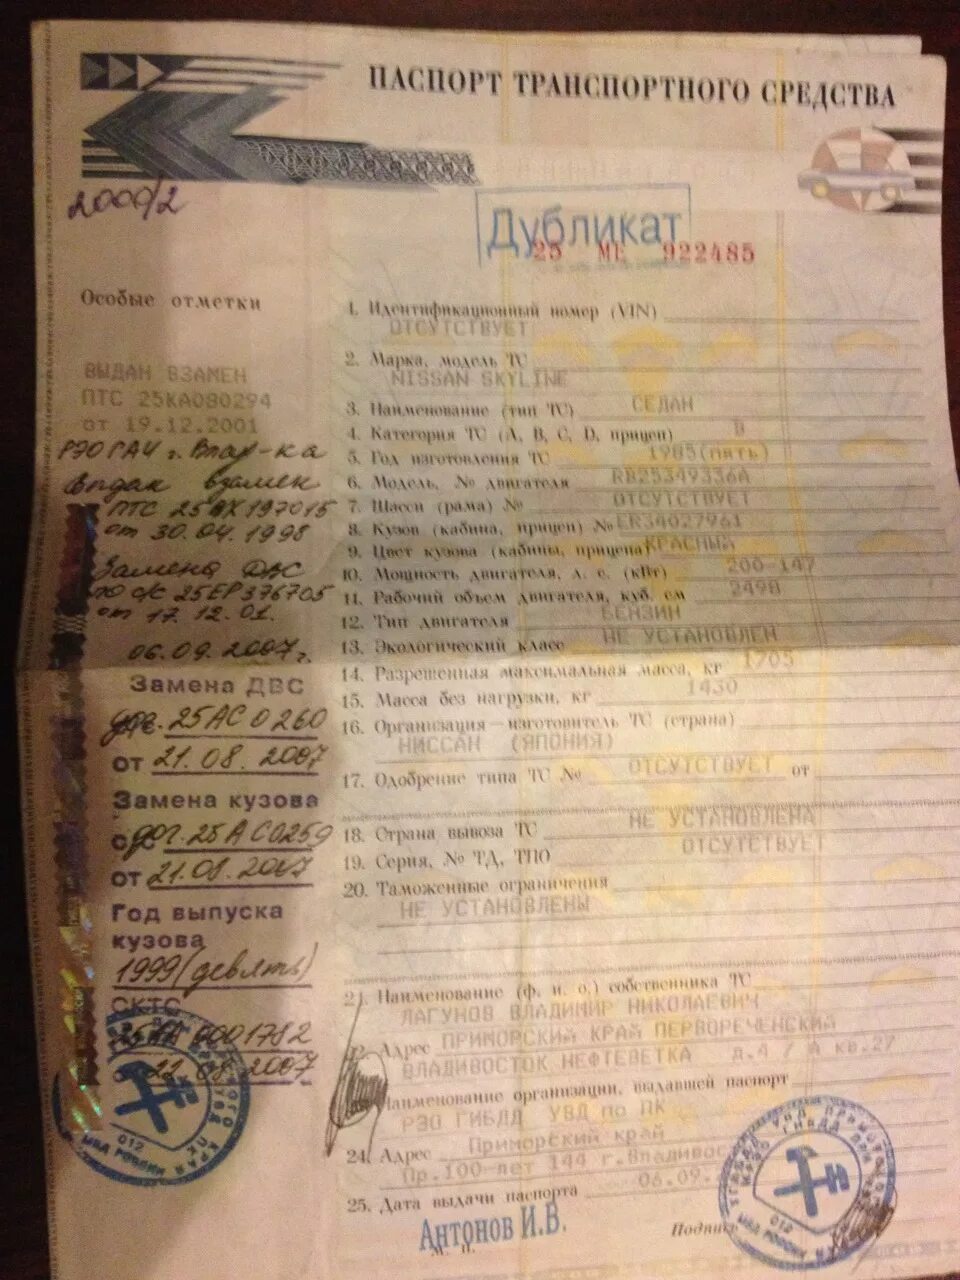 ПАСПОРТ ТРАНСПОРТНОГО СРЕДСТВА
2000/2
Дубликат
25 МЕ 922485
Особые отметки
ВЫДАН ВЗАМЕН
ПТС 25КА080294
от 19.12.2001
РЭО ГАИ г. Влад-ка
Выдан взамен
ПТС 25АХ197015
от 30.04.1998
Замена ДВС
по с/с 25ЕР376705
от 17.12.01.
06.09.2007г.
Замена ДВС
дог. 25АС 0260
от 21.08.2007
Замена кузова
дог. 25АС0259
от 21.08.2007
Год выпуска
кузова
1999(девять)
СКТС
25АА 0001782
22.08.2007
1. Идентификационный номер (VIN)
ОТСУТСТВУЕТ
2. Марка, модель ТС
NISSAN SKYLINE
3. Наименование (тип ТС) СЕДАН
4. Категория ТС (А, В, С, D, прицеп) В
5. Год изготовления ТС 1985(пять)
6. Модель, № двигателя RB25349336A
7. Шасси (рама) № ОТСУТСТВУЕТ
8. Кузов (кабина, прицеп) № ER34027961
9. Цвет кузова (кабины, прицепа) КРАСНЫЙ
10. Мощность двигателя, л. с. (кВт) 200-147
11. Рабочий объем двигателя, куб. см 2498
12. Тип двигателя БЕНЗИН
13. Экологический класс НЕ УСТАНОВЛЕН
14. Разрешенная максимальная масса, кг 1705
15. Масса без нагрузки, кг 1430
16. Организация—изготовитель ТС (страна)
НИССАН (ЯПОНИЯ)
17. Одобрение типа ТС № ОТСУТСТВУЕТ от
18. Страна вывоза ТС НЕ УСТАНОВЛЕНА
19. Серия, № ТД, ТПО ОТСУТСТВУЕТ
20. Таможенные ограничения
НЕ УСТАНОВЛЕНЫ
21. Наименование (ф. и. о.) собственника ТС
ЛАГУНОВ ВЛАДИМИР НИКОЛАЕВИЧ
Адрес ПРИМОРСКИЙ КРАЙ ПЕРВОРЕЧЕНСКИЙ
ВЛАДИВОСТОК НЕФТЕВЕТКА д.4 / А кв.27
Наименование организации, выдавшей паспорт
РЭО ГИБДД УВД по ПК
24. Адрес Приморский край
Пр.100-лет 144 г.Владивос
25. Дата выдачи паспорта 06.09.
АНТОНОВ И.В.
М. П.
Подпись
012
МВД РОССИИ
012
МВД РОССИИ